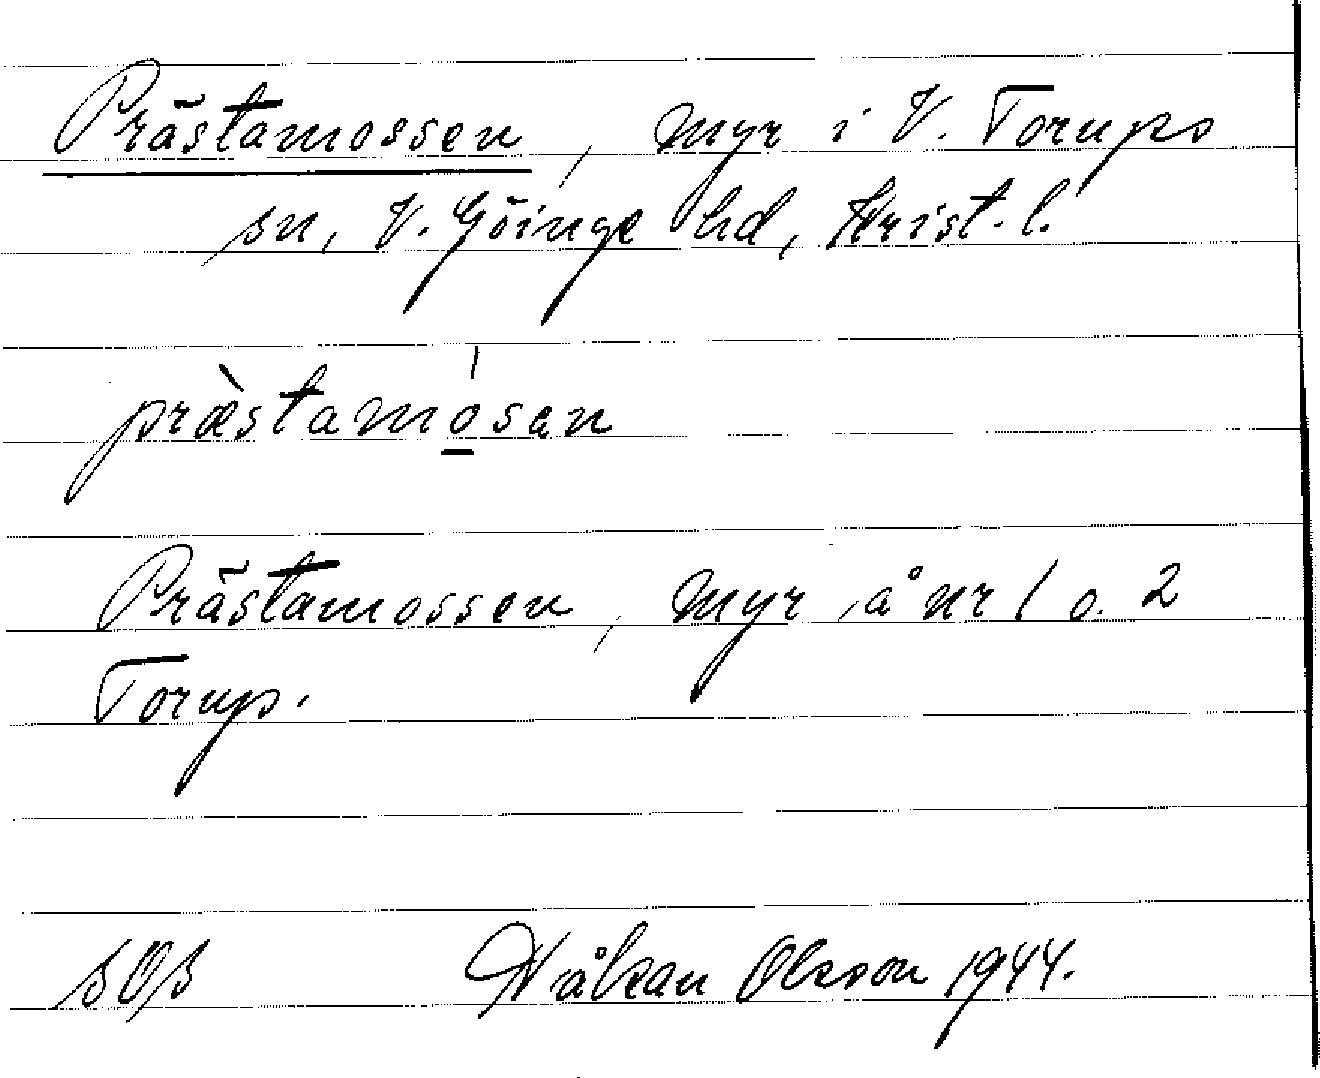 Prästamossen, myr i V. Torups
sn, V. Göinge hd, Krist. l.
præ̀stamo̲ˈsən
Prästamossen, myr å nr 1 o. 2
Torup.
SOS Håkan Olsson 1944.